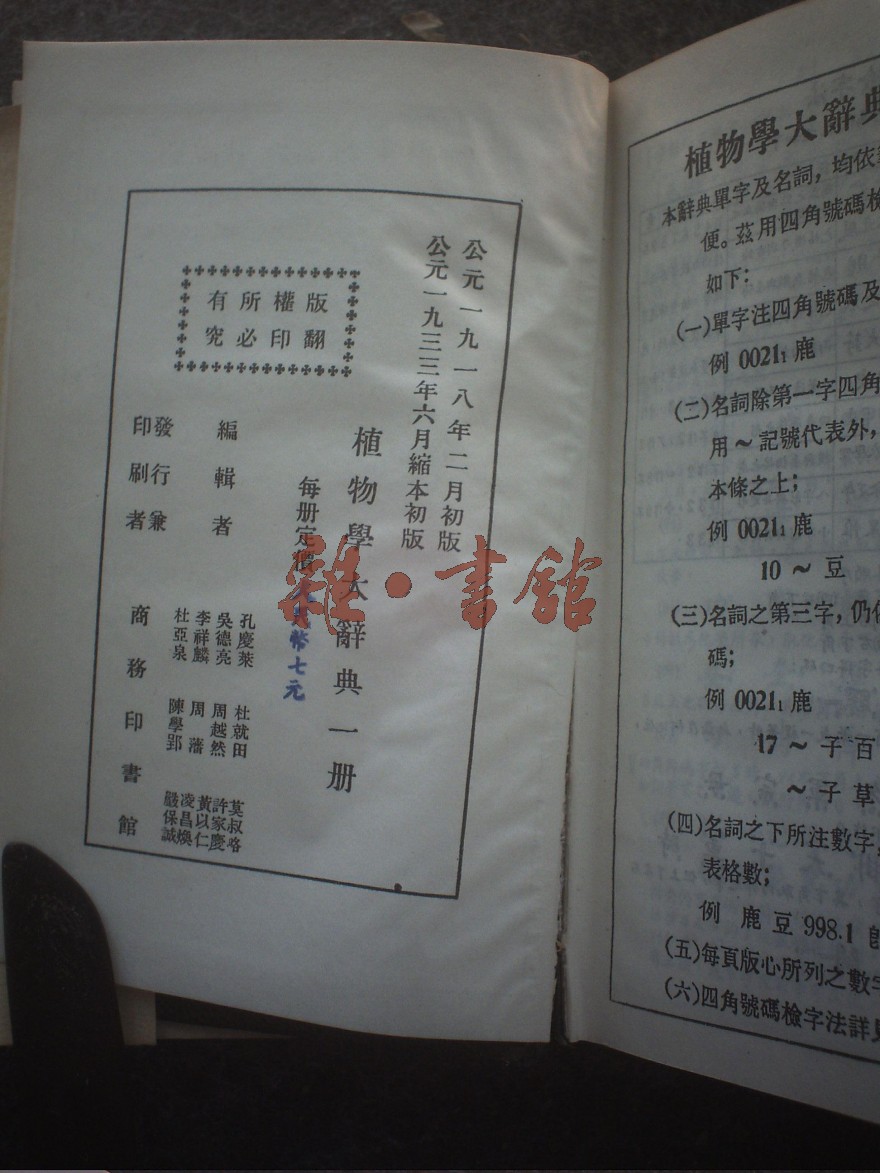 公元一九一八年二月初版
公元一九三三年六月縮本初版
植物學大辭典一册
每册定價
幣七元
版權所有
翻印必究
編輯者
孔慶萊 杜就田 莫叔略
吳德亮 周越然 許家慶
李祥麟 周藩 黃以仁
杜亞泉 陳學郢 凌昌煥
嚴保誠
發行兼
印刷者
商務印書館
雜·書館
植物學大辭典
本辭典單字及名詞，均依
便。茲用四角號碼檢
如下：
(一)單字注四角號碼及
例 0021₁ 鹿
(二)名詞除第一字四角
用～記號代表外，
本條之上；
例 0021₁ 鹿
10 ～ 豆
(三)名詞之第三字，仍
碼；
例 0021₁ 鹿
17 ～ 子 百
～ 子 草
(四)名詞之下所注數字，
表格數；
例 鹿 豆 998.1 卽
(五)每頁版心所列之數字
(六)四角號碼檢字法詳見